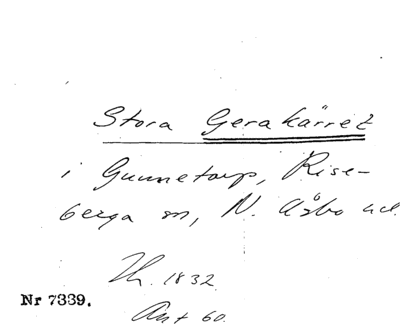 Stora Gerakärret
i Gunnetorp, Rise-
berga sn, N. Åsbo hd.
Th. 1832
Ant 60.
Nr 7339.